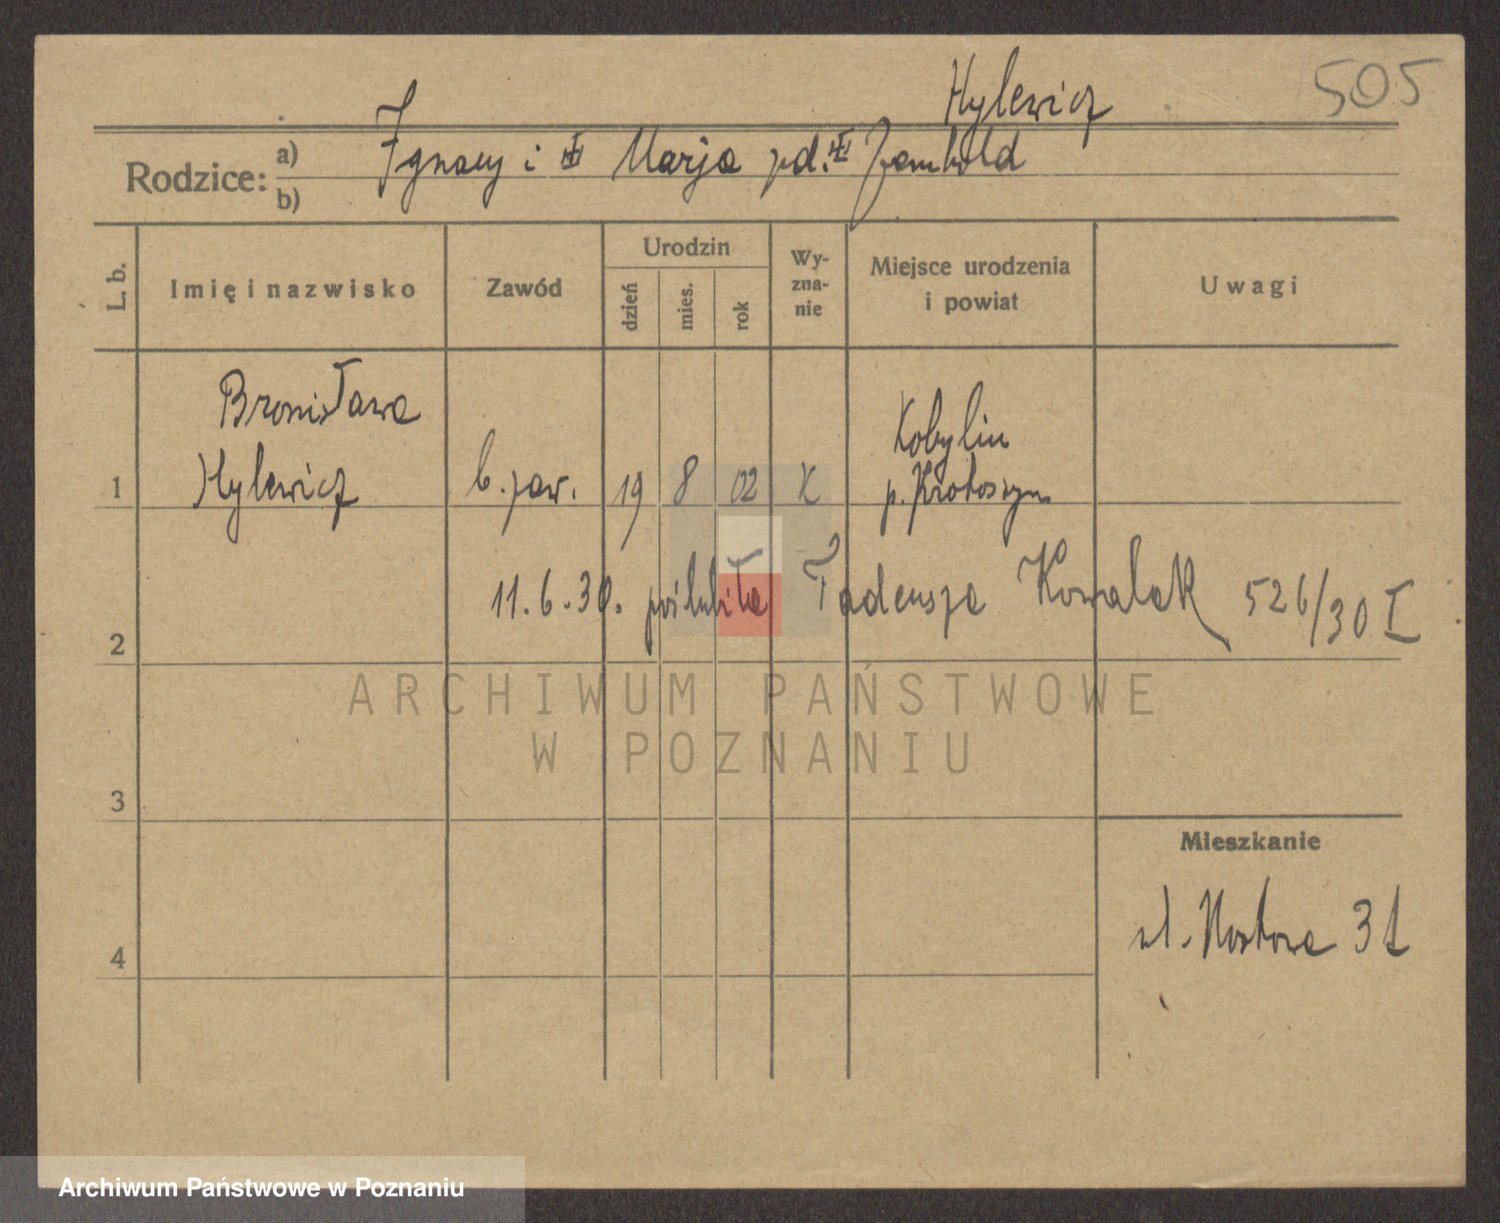 505
Hylewicz
Rodzice: a) Ignacy i Marja pd. Jambold
b)
L. b. Imię i nazwisko Zawód Urodzin dzień mies. rok Wy-zna-nie Miejsce urodzenia i powiat Uwagi
Bronisława Kobylin
1 Hylewicz b. zaw. 19 8 02 K p. Krotoszyn
2 11.6.30. poślubiła Tadeusza Kowalak 526/30 I
ARCHIWUM PAŃSTWOWE
W POZNANIU
3
Mieszkanie
4 ul. Mostowa 31
Archiwum Państwowe w Poznaniu